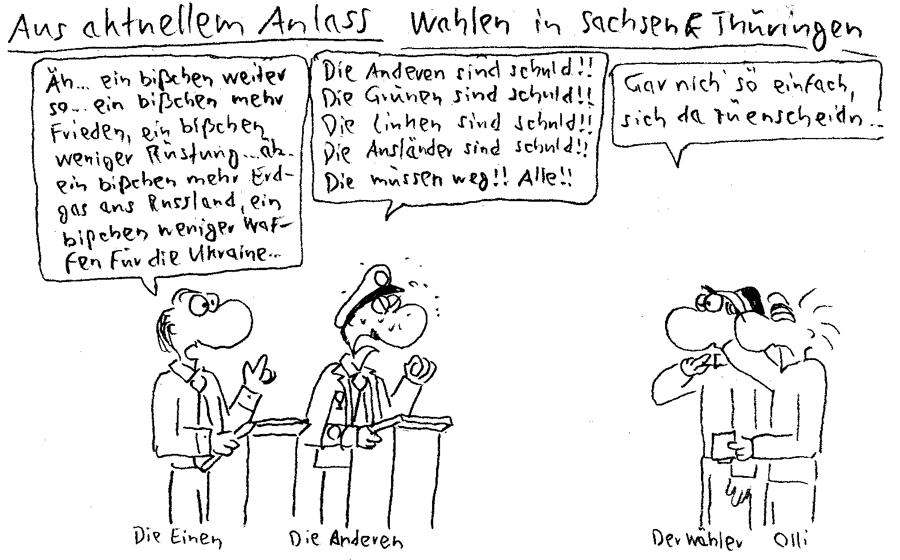 Aus aktuellem Anlass Wahlen in Sachsen & Thüringen
Äh... ein bißchen weiter
so... ein bißchen mehr
Frieden, ein bißchen
weniger Rüstung...äh..
ein bißchen mehr Erd-
gas aus Russland, ein
bißchen weniger Waf-
fen für die Ukraine...
Die Anderen sind schuld!!
Die Grünen sind schuld!!
Die Linken sind schuld!!
Die Ausländer sind schuld!!
Die müssen weg!! Alle!!
Gar nich' so einfach,
sich da zu enscheidn...
Die Einen
Die Anderen
Der Wähler
Olli